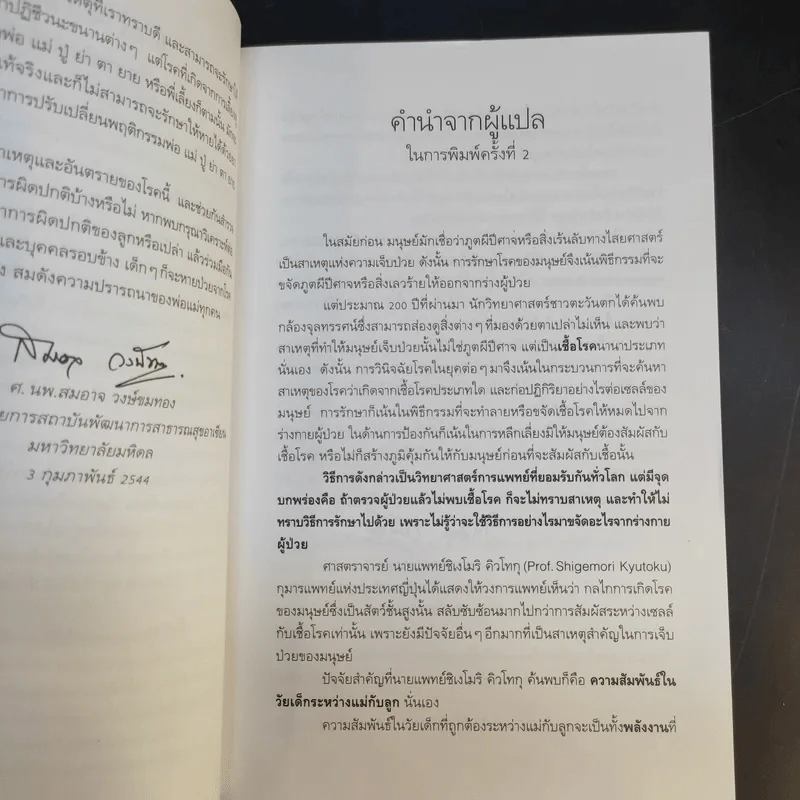 เหตุที่เราทราบดี และสามารถจะรักษาได้
ปฏิชีวนะขนานต่างๆ แต่โรคที่เกิดจากการเลี้ยง
พ่อ แม่ ปู่ ย่า ตา ยาย หรือพี่เลี้ยงก็ตามนั้น
แท้จริงและก็ไม่สามารถจะรักษาให้หายได้ด้วย
การปรับเปลี่ยนพฤติกรรมพ่อ แม่ ปู่ ย่า ตา ยาย
าเหตุและอันตรายของโรคนี้ และช่วยกันสำรวจ
การผิดปกติบ้างหรือไม่ หากพบกรุณาวิเคราะห์
าการผิดปกติของลูกหรือเปล่า แล้วร่วมมือกัน
และบุคคลรอบข้าง เด็กๆ ก็จะหายป่วยจากโรค
ง สมดังความปรารถนาของพ่อแม่ทุกคน
ศ. นพ.สมอาจ วงษ์ขมทอง
ยการสถาบันพัฒนาการสาธารณสุขอาเซียน
มหาวิทยาลัยมหิดล
3 กุมภาพันธ์ 2544
คำนำจากผู้แปล
ในการพิมพ์ครั้งที่ 2
ในสมัยก่อน มนุษย์มักเชื่อว่าภูตผีปีศาจหรือสิ่งเร้นลับทางไสยศาสตร์
เป็นสาเหตุแห่งความเจ็บป่วย ดังนั้น การรักษาโรคของมนุษย์จึงเน้นพิธีกรรมที่จะ
ขจัดภูตผีปีศาจหรือสิ่งเลวร้ายให้ออกจากร่างผู้ป่วย
แต่ประมาณ 200 ปีที่ผ่านมา นักวิทยาศาสตร์ชาวตะวันตกได้ค้นพบ
กล้องจุลทรรศน์ซึ่งสามารถส่องดูสิ่งต่างๆ ที่มองด้วยตาเปล่าไม่เห็น และพบว่า
สาเหตุที่ทำให้มนุษย์เจ็บป่วยนั้นไม่ใช่ภูตผีปีศาจ แต่เป็นเชื้อโรคนานาประเภท
นั่นเอง ดังนั้น การวินิจฉัยโรคในยุคต่อๆ มาจึงเน้นในกระบวนการที่จะค้นหา
สาเหตุของโรคว่าเกิดจากเชื้อโรคประเภทใด และก่อปฏิกิริยาอย่างไรต่อเซลล์ของ
มนุษย์ การรักษาก็เน้นในพิธีกรรมที่จะทำลายหรือขจัดเชื้อโรคให้หมดไปจาก
ร่างกายผู้ป่วย ในด้านการป้องกันก็เน้นในการหลีกเลี่ยงมิให้มนุษย์ต้องสัมผัสกับ
เชื้อโรค หรือไม่ก็สร้างภูมิคุ้มกันให้กับมนุษย์ก่อนที่จะสัมผัสกับเชื้อนั้น
วิธีการดังกล่าวเป็นวิทยาศาสตร์การแพทย์ที่ยอมรับกันทั่วโลก แต่มีจุด
บกพร่องคือ ถ้าตรวจผู้ป่วยแล้วไม่พบเชื้อโรค ก็จะไม่ทราบสาเหตุ และทำให้ไม่
ทราบวิธีการรักษาไปด้วย เพราะไม่รู้ว่าจะใช้วิธีการอย่างไรมาขจัดอะไรจากร่างกาย
ผู้ป่วย
ศาสตราจารย์ นายแพทย์ชิเงโมริ คิวโทกุ (Prof. Shigemori Kyutoku)
กุมารแพทย์แห่งประเทศญี่ปุ่นได้แสดงให้วงการแพทย์เห็นว่า กลไกการเกิดโรค
ของมนุษย์ซึ่งเป็นสัตว์ชั้นสูงนั้น สลับซับซ้อนมากไปกว่าการสัมผัสระหว่างเซลล์
กับเชื้อโรคเท่านั้น เพราะยังมีปัจจัยอื่นๆ อีกมากที่เป็นสาเหตุสำคัญในการเจ็บ
ป่วยของมนุษย์
ปัจจัยสำคัญที่นายแพทย์ชิเงโมริ คิวโทกุ ค้นพบก็คือ ความสัมพันธ์ใน
วัยเด็กระหว่างแม่กับลูก นั่นเอง
ความสัมพันธ์ในวัยเด็กที่ถูกต้องระหว่างแม่กับลูกจะเป็นทั้งพลังงานที่